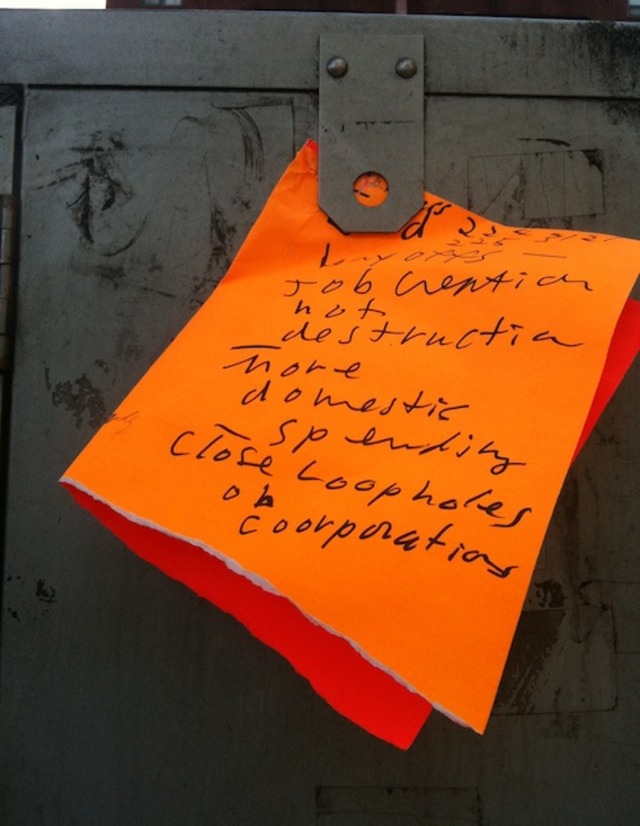 Layoffs —
Job Creation
not
destruction
more
domestic
— spending
close Loopholes
on
coorporations